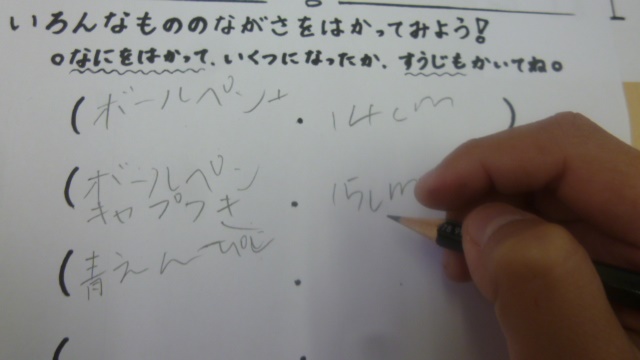 いろんなもののながさをはかってみよう!
。なにをはかって、いくつになったか、すうじもかいてね。
(ボールペン ・ 14cm )
(ボールペン
キャップつき ・ 15cm
(青えんぴつ ・
( ・